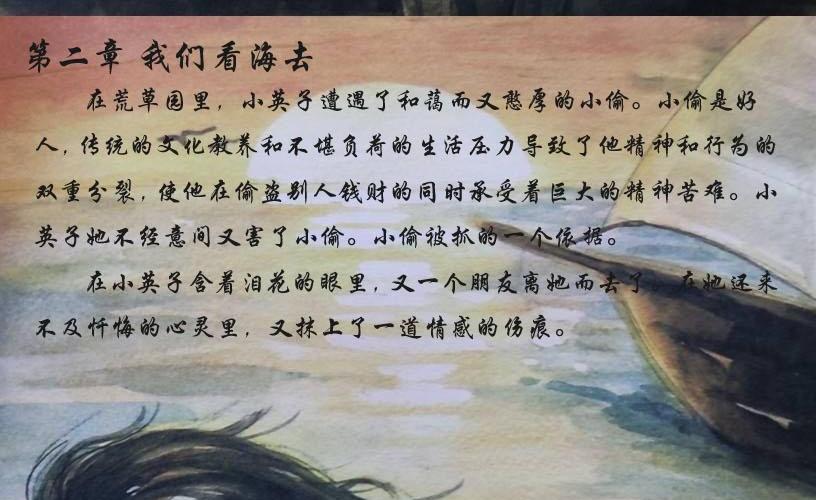 第二章 我们看海去
在荒草园里，小英子遭遇了和蔼而又憨厚的小偷。小偷是好
人，传统的文化教养和不堪负荷的生活压力导致了他精神和行为的
双重分裂，使他在偷盗别人钱财的同时承受着巨大的精神苦难。小
英子她不经意间又害了小偷。小偷被抓的一个依据。
在小英子含着泪花的眼里，又一个朋友离她而去了。在她还来
不及忏悔的心灵里，又抹上了一道情感的伤痕。